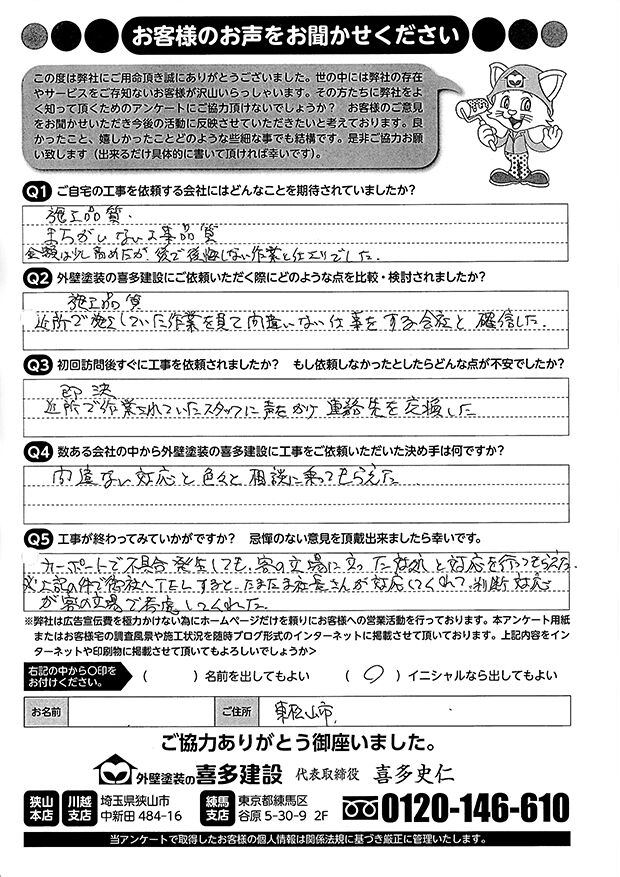 お客様のお声をお聞かせください
この度は弊社にご用命頂き誠にありがとうございました。世の中には弊社の存在
やサービスをご存知ないお客様が沢山いらっしゃいます。その方たちに弊社をよ
く知って頂くためのアンケートにご協力頂けないでしょうか？ お客様のご意見
をお聞かせいただき今後の活動に反映させていただきたいと考えております。良
かったこと、嬉しかったことどのような些細な事でも結構です。是非ご協力お願
い致します（出来るだけ具体的に書いて頂ければ幸いです）。
Q1 ご自宅の工事を依頼する会社にはどんなことを期待されていましたか？
施工品質.
まちがいない工事品質
金額は少し高めだが、後で後悔しない作業と仕上りでした.
Q2 外壁塗装の喜多建設にご依頼いただく際にどのような点を比較・検討されましたか？
施工品質
近所で施工していた作業を見て間違いない仕事をする会社と確信した.
Q3 初回訪問後すぐに工事を依頼されましたか？ もし依頼しなかったとしたらどんな点が不安でしたか？
即決
近所で作業されていたスタッフに声をかけ連絡先を交換した
Q4 数ある会社の中から外壁塗装の喜多建設に工事をご依頼いただいた決め手は何ですか？
間違ない対応と色々と相談に乗ってもらえた
Q5 工事が終わってみていかがですか？ 忌憚のない意見を頂戴出来ましたら幸いです。
カーポートで不具合発生しても、客の立場に立った対応を行ってもらえた.
※上記の件で御社へTELすると、たまたま社長さんが対応してくれて、判断対応
が客の立場で考慮してくれた.
※弊社は広告宣伝費を極力かけない為にホームページだけを頼りにお客様への営業活動を行っております。本アンケート用紙
またはお客様宅の調査風景や施工状況を随時ブログ形式のインターネットに掲載させて頂いております。上記内容をイン
ターネットや印刷物に掲載させて頂いてもよろしいでしょうか＞
右記の中から〇印を
お付けください。
（ ）名前を出してもよい （ 〇 ）イニシャルなら出してもよい
お名前 ご住所 東松山市.
ご協力ありがとう御座いました。
外壁塗装の喜多建設 代表取締役 喜多史仁
狭山本店 川越支店 埼玉県狭山市
中新田 484-16
練馬支店 東京都練馬区
谷原 5-30-9 2F
0120-146-610
当アンケートで取得したお客様の個人情報は関係法規に基づき厳正に管理いたします。